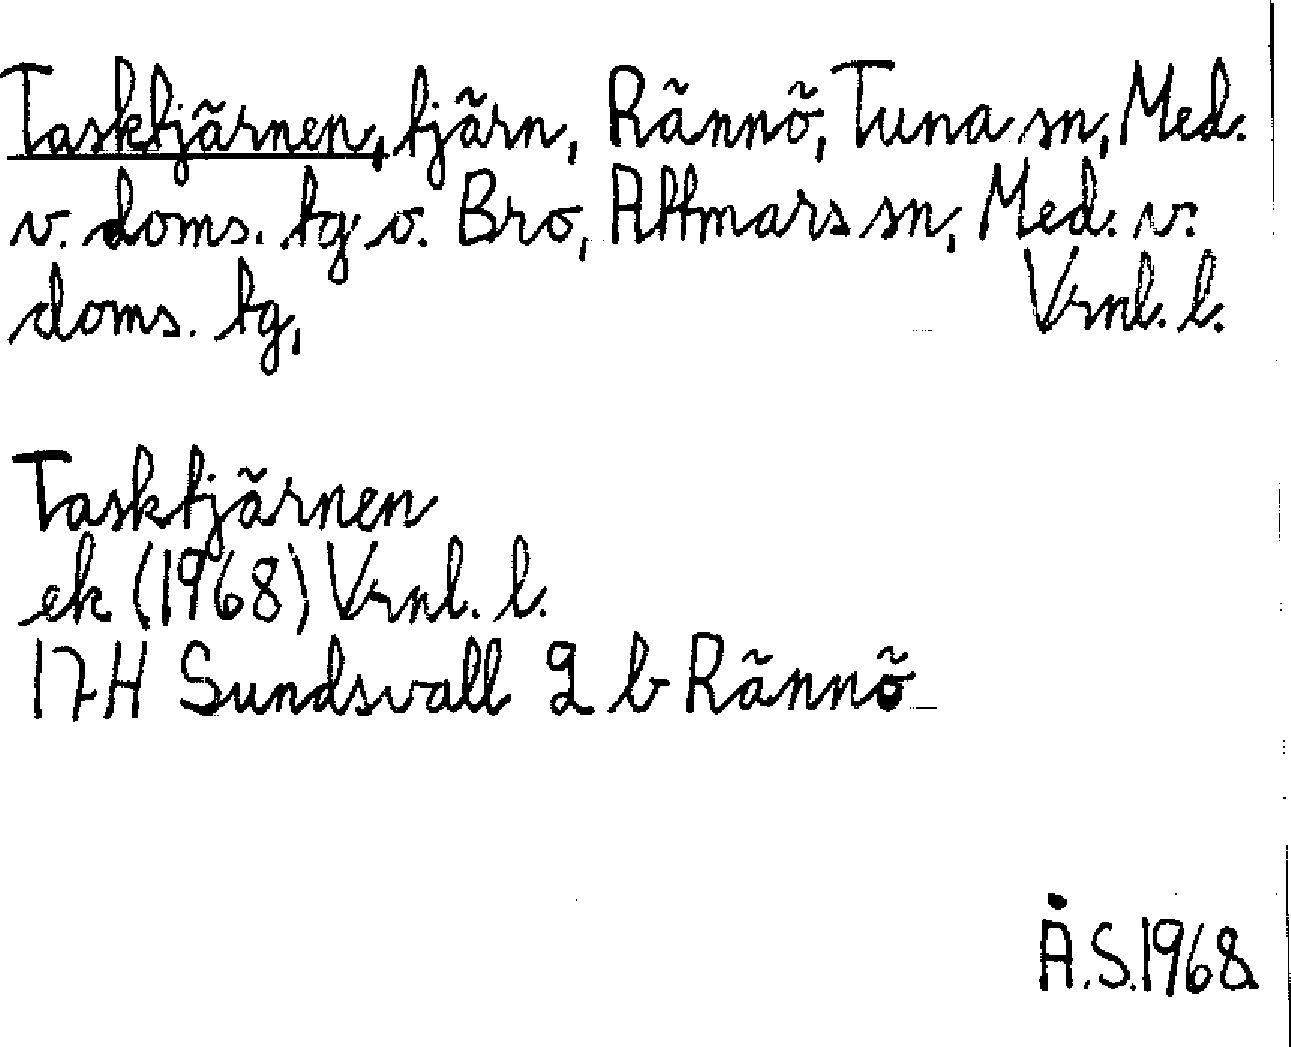 Tasktjärnen, tjärn, Rännö, Tuna sn, Med.
v. doms. tg o. Bro, Attmars sn, Med. v.
doms. tg, Vrnl. l.
Tasktjärnen
ek (1968) Vrnl. l.
17H Sundsvall 2 b Rännö
Å.S.1968